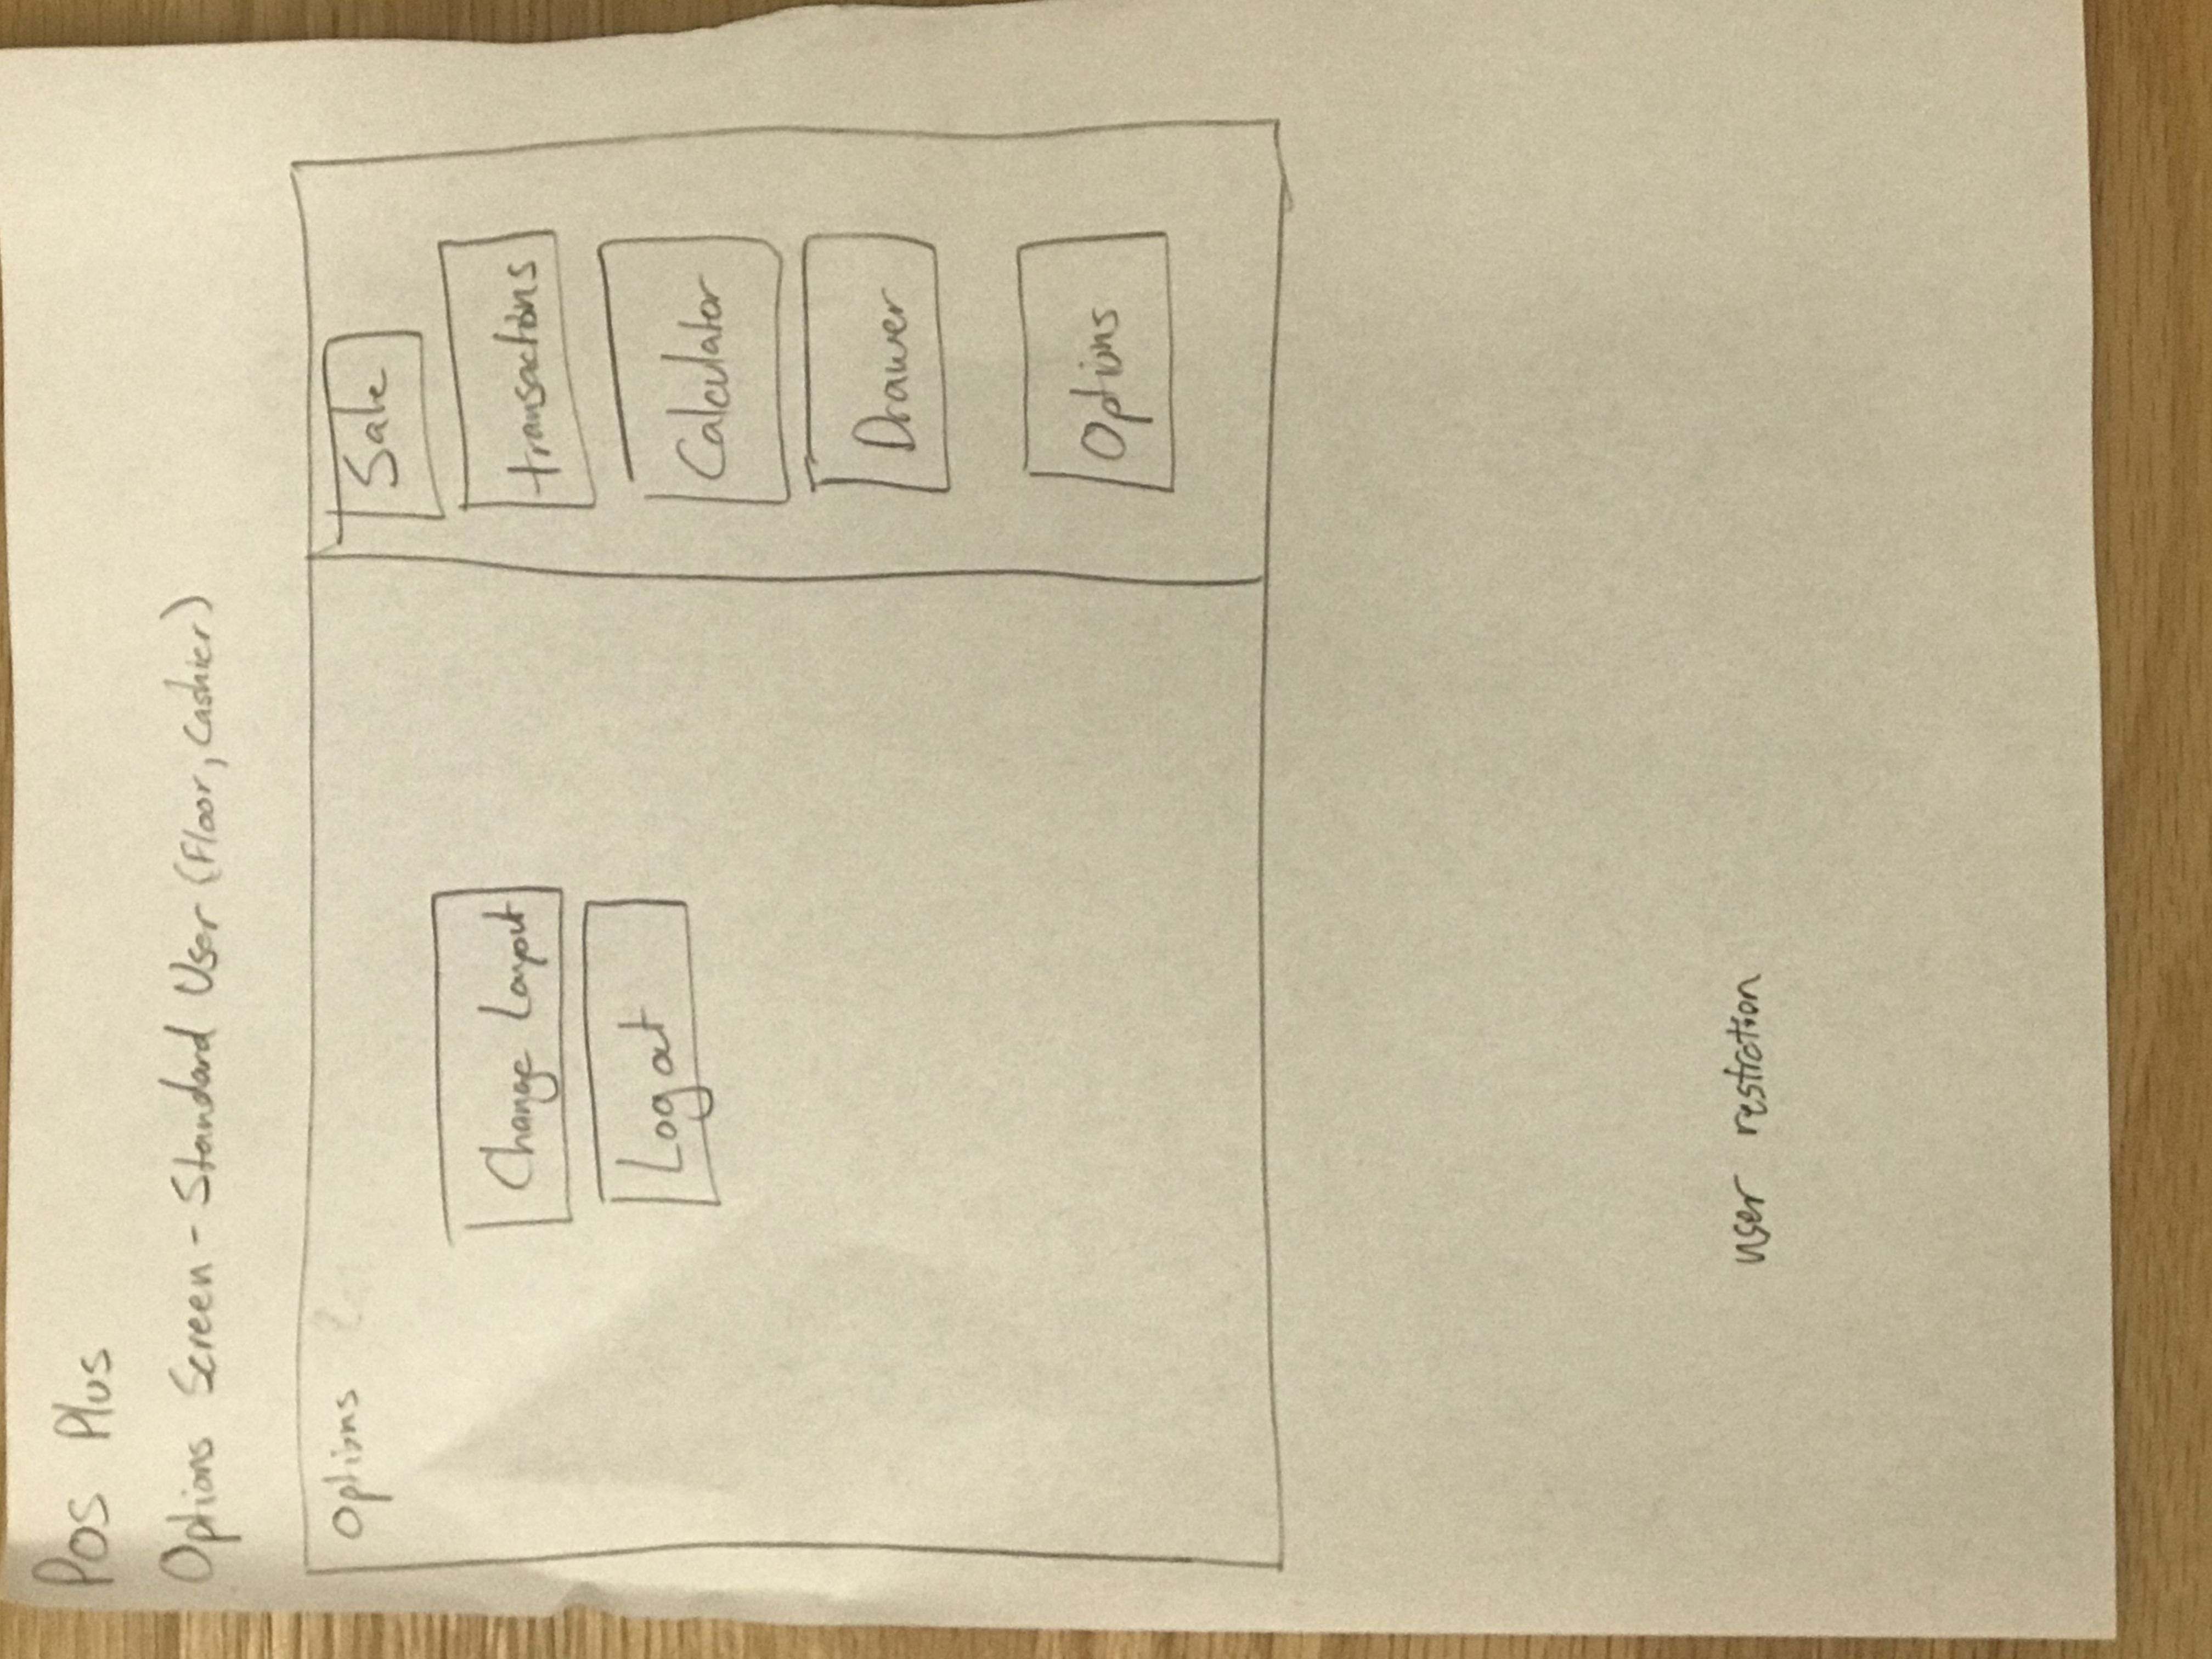 Pos Plus
Options Screen - Standard User (Floor, Cashier)
Options
Change Layout
Logout
Sale
transactions
Calculator
Drawer
Options
user restrction